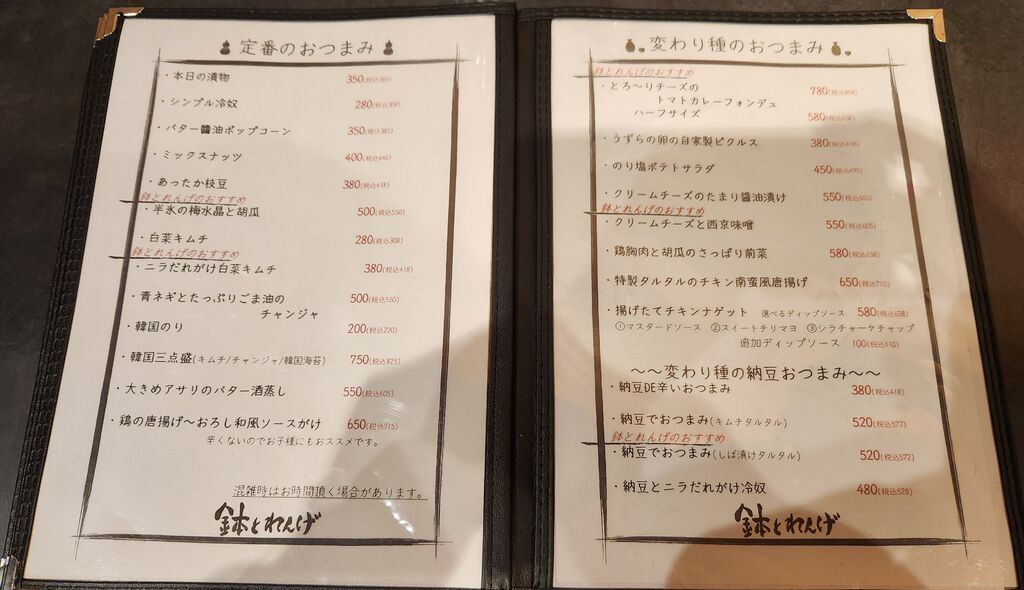 定番のおつまみ
・本日の漬物 350(税込385)
・シンプル冷奴 280(税込308)
・バター醤油ポップコーン 350(税込385)
・ミックスナッツ 400(税込440)
・あったか枝豆 380(税込418)
鉢とれんげのおすすめ
・半氷の梅水晶と胡瓜 500(税込550)
・白菜キムチ 280(税込308)
鉢とれんげのおすすめ
・ニラだれがけ白菜キムチ 380(税込418)
・青ネギとたっぷりごま油の 500(税込550)
チャンジャ
・韓国のり 200(税込220)
・韓国三点盛(キムチ/チャンジャ/韓国海苔) 750(税込825)
・大きめアサリのバター酒蒸し 550(税込605)
・鶏の唐揚げ〜おろし和風ソースがけ 650(税込715)
辛くないのでお子様にもおススメです。
混雑時はお時間頂く場合があります。
鉢とれんげ
変わり種のおつまみ
鉢とれんげのおすすめ
・とろ〜りチーズの 780(税込858)
トマトカレーフォンデュ
ハーフサイズ 580(税込638)
・うずらの卵の自家製ピクルス 380(税込418)
・のり塩ポテトサラダ 450(税込495)
・クリームチーズのたまり醤油漬け 550(税込605)
鉢とれんげのおすすめ
・クリームチーズと西京味噌 550(税込605)
・鶏胸肉と胡瓜のさっぱり前菜 580(税込638)
・特製タルタルのチキン南蛮風唐揚げ 650(税込715)
・揚げたてチキンナゲット 選べるディップソース 580(税込638)
①マスタードソース ②スイートチリマヨ ③シラチャーケチャップ
追加ディップソース 100(税込110)
〜〜変わり種の納豆おつまみ〜〜
・納豆DE辛いおつまみ 380(税込418)
・納豆でおつまみ(キムチタルタル) 520(税込572)
鉢とれんげのおすすめ
・納豆でおつまみ(しば漬けタルタル) 520(税込572)
・納豆とニラだれがけ冷奴 480(税込528)
鉢とれんげ